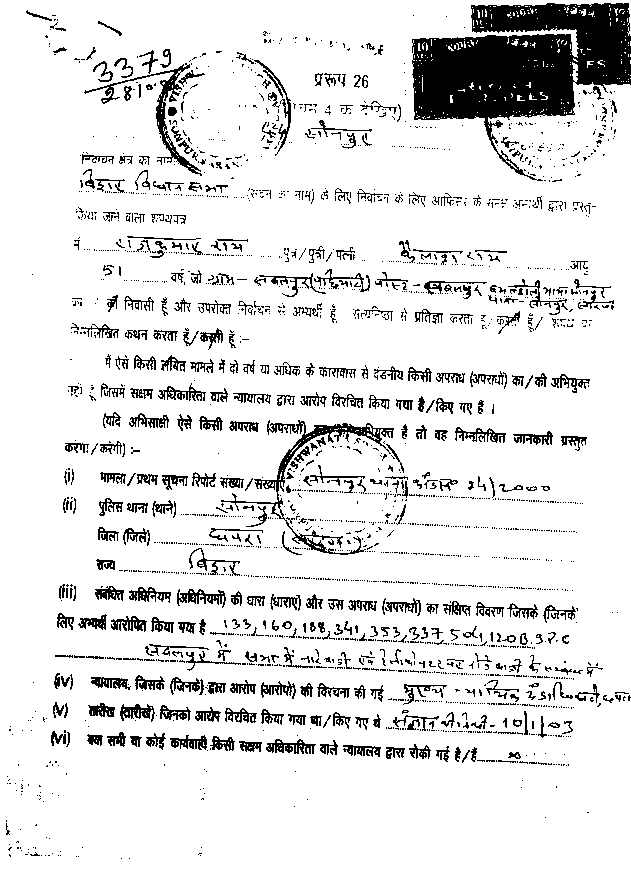 3379
28/0
प्ररूप 26
(नियम 4 क देखिए)
निर्वाचन क्षेत्र का नाम सोनपुर
बिहार विधान सभा (सदन का नाम) के लिए निर्वाचन के लिए आफिसर के समक्ष अभ्यर्थी द्वारा प्रस्तुत
किया जाने वाला शपथपत्र
मैं राजकुमार राम पुत्र/पुत्री/पत्नी कैलाश राम आयु
51 वर्ष, जो ग्राम - सबलपुर पोस्ट - सबलपुर थाना - सोनपुर, सारण
का निवासी हूँ और उपरोक्त निर्वाचन से अभ्यर्थी हूँ सत्यनिष्ठा से प्रतिज्ञा करता हूँ/करती हूँ/ शपथ पर
निम्नलिखित कथन करता हूँ/करती हूँ :-
मैं ऐसे किसी लंबित मामले में दो वर्ष या अधिक के कारावास से दंडनीय किसी अपराध (अपराधों) का/की अभियुक्त
नहीं हूँ जिसमें सक्षम अधिकारिता वाले न्यायालय द्वारा आरोप विरचित किया गया है/किए गए हैं ।
(यदि अभिसाक्षी ऐसे किसी अपराध (अपराधों) का/की अभियुक्त है तो वह निम्नलिखित जानकारी प्रस्तुत
करेगा/करेगी) :-
(i) मामला/प्रथम सूचना रिपोर्ट संख्या/संख्याएं सोनपुर थाना कांड सं० 24/2000
(ii) पुलिस थाना (थाने) सोनपुर
जिला (जिले) छपरा (सारण)
राज्य बिहार
(iii) संबंधित अधिनियम (अधिनियमों) की धारा (धाराएं) और उस अपराध (अपराधों) का संक्षिप्त विवरण जिसके (जिनके)
लिए अभ्यर्थी आरोपित किया गया है 133, 160, 188, 341, 353, 337, 504, 120B, I.P.C
सबलपुर में सभा में नारेबाजी एवं हेलीकोप्टर पर रोड़ेबाजी के सम्बन्ध में
(iv) न्यायालय, जिसके (जिनके) द्वारा आरोप (आरोपों) की विरचना की गई मुख्य - न्यायिक दंडाधिकारी, छपरा
(v) तारीख (तारीखें) जिनको आरोप विरचित किया गया था/किए गए थे संज्ञान की तिथी - 10/1/03
(vi) क्या सभी या कोई कार्यवाही किसी सक्षम अधिकारिता वाले न्यायालय द्वारा रोकी गई है/हैं